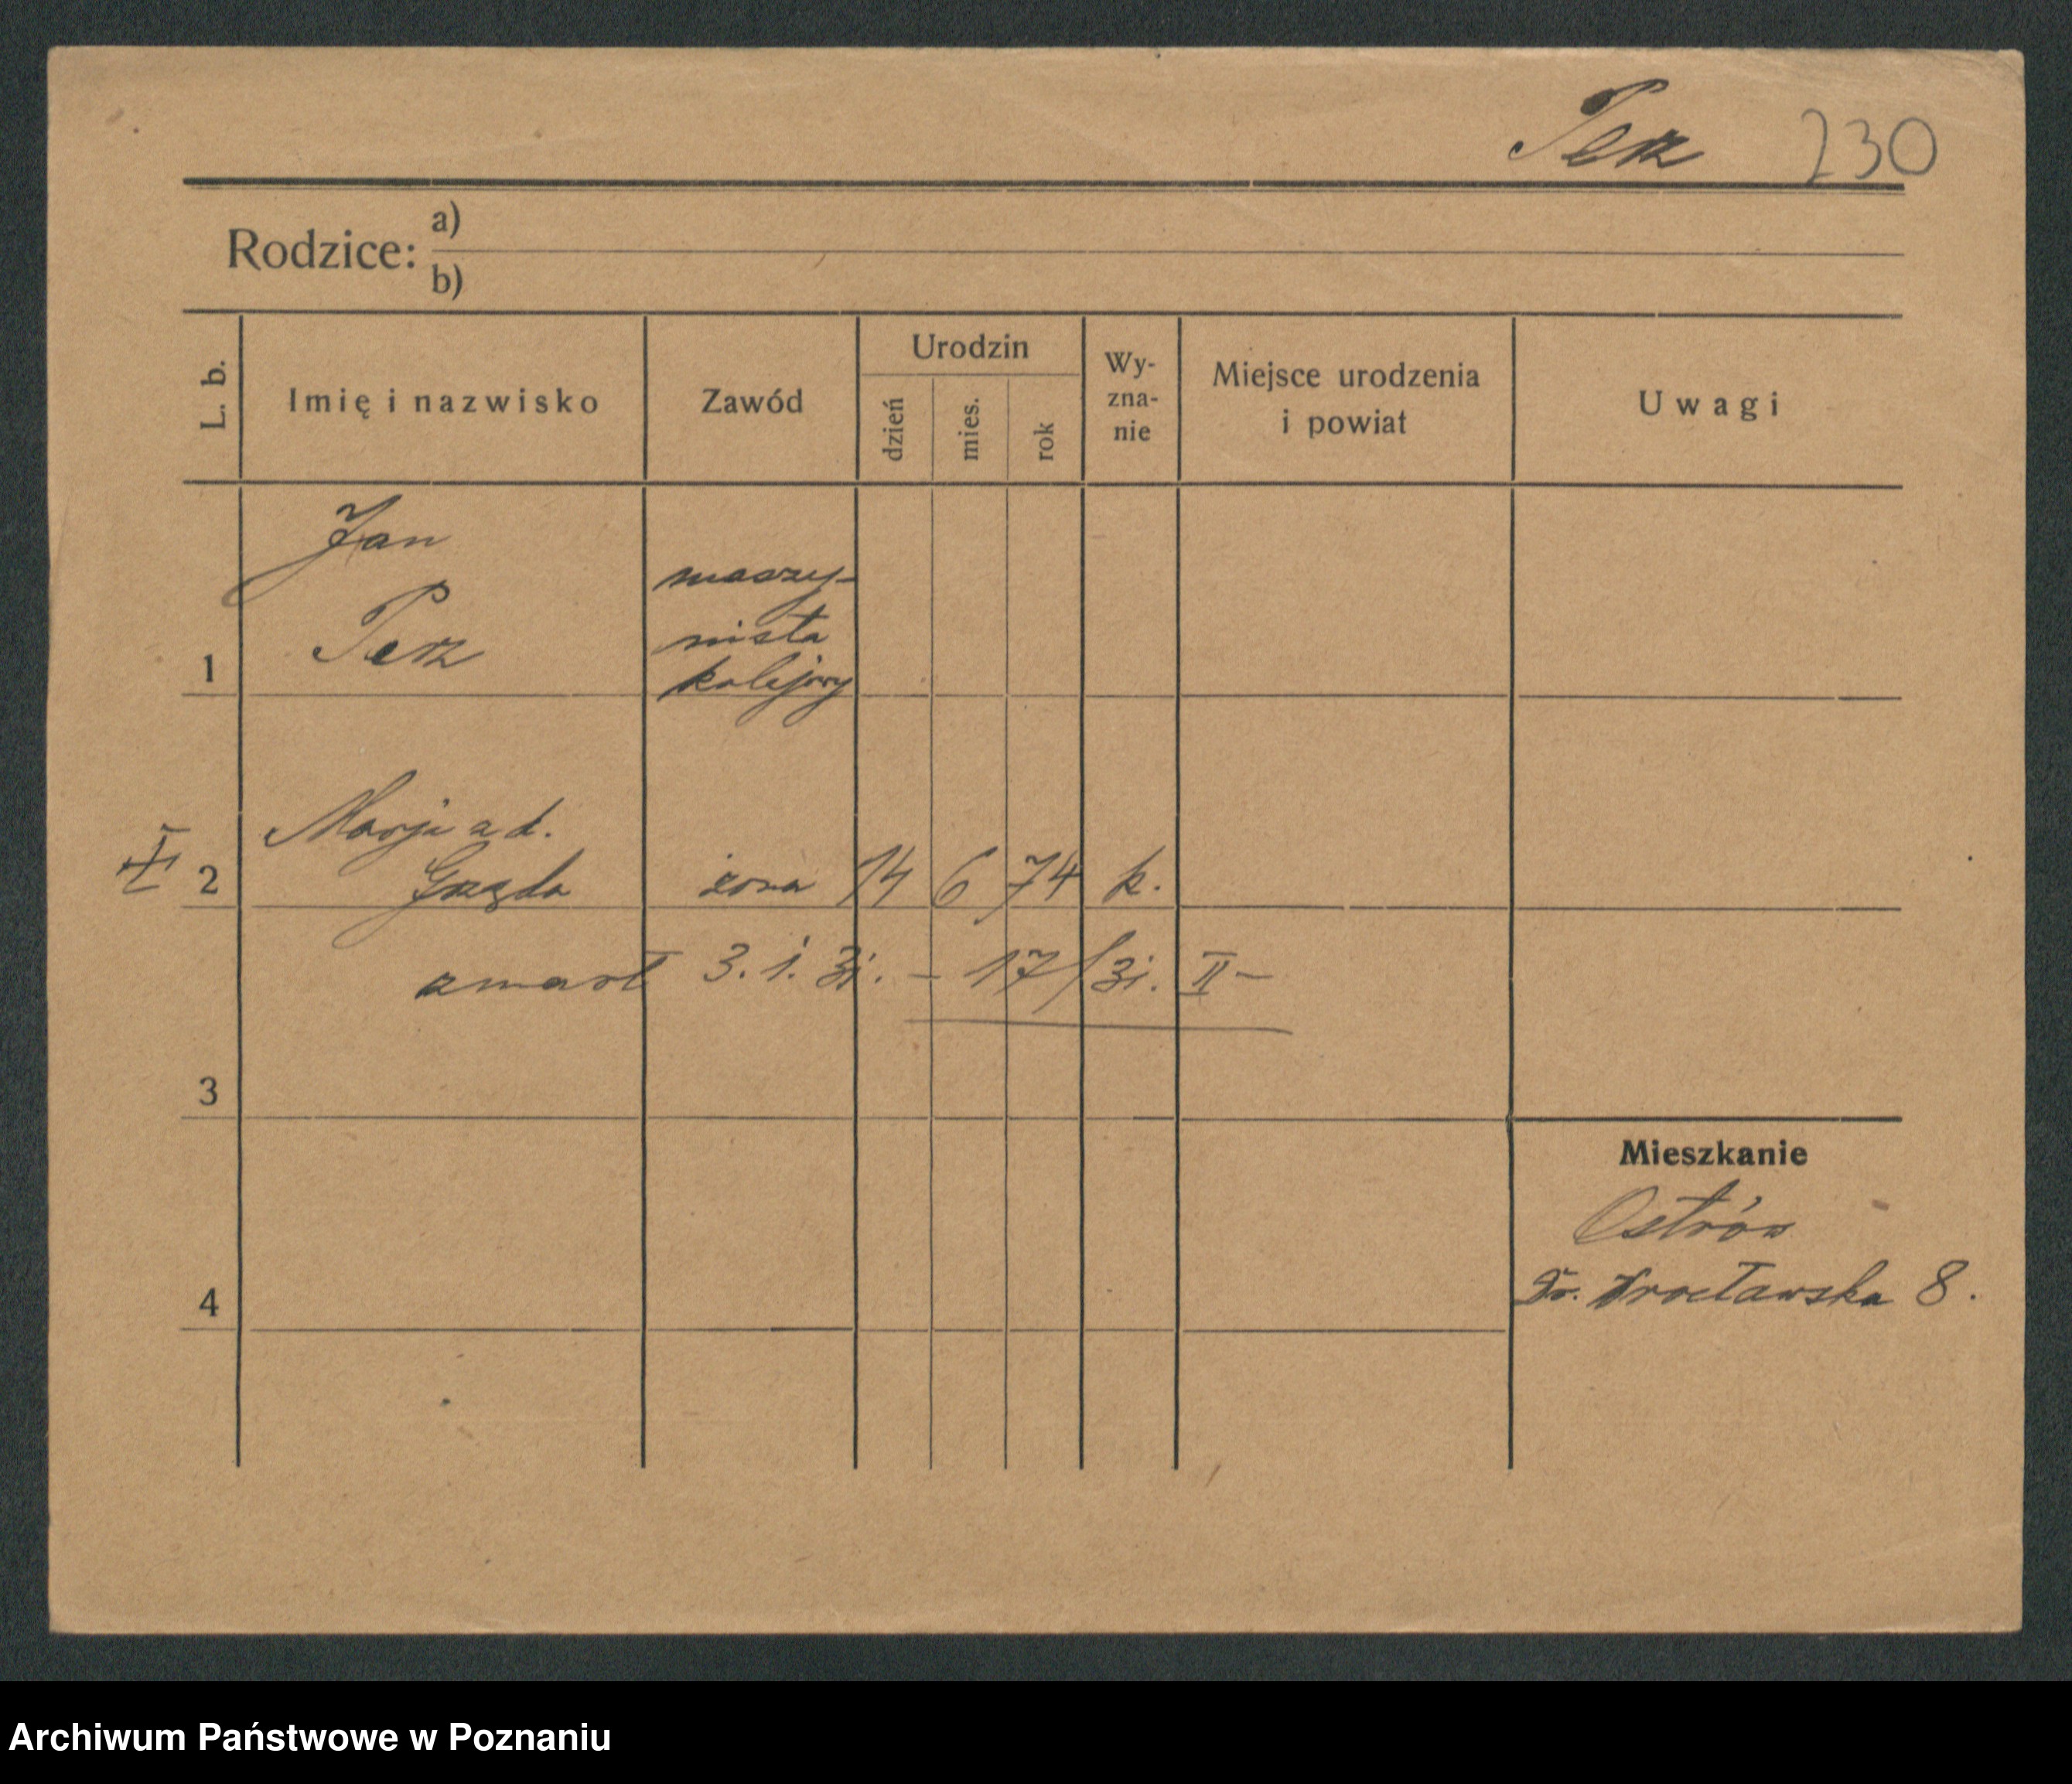 Perz 230
Rodzice:
a)
b)
L. b.
Imię i nazwisko
Zawód
Urodzin
dzień
mies.
rok
Wy-
zna-
nie
Miejsce urodzenia
i powiat
Uwagi
Jan
Perz
maszy-
nista
kolejowy
1
Marja z d.
Gazda żona 14 6 74 k.
2
zmarł 3. 1. 31. – 17/31. II –
3
Mieszkanie
Ostrów
Wrocławska 8.
4
Archiwum Państwowe w Poznaniu